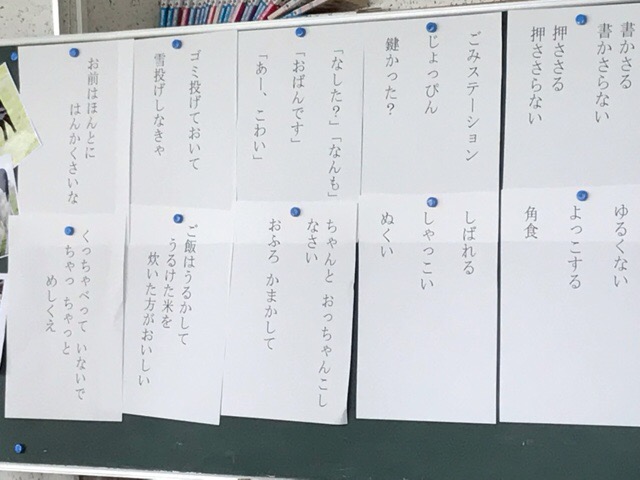 書かさる
書かさらない
押ささる
押ささらない
ごみステーション
じょっぴん
鍵かった？
「なした？」「なんも」
「おばんです」
「あー、こわい」
ゴミ投げておいて
雪投げしなきゃ
お前はほんとに
はんかくさいな
ゆるくない
よっこする
角食
しばれる
しゃっこい
ぬくい
ちゃんと おっちゃんこし
なさい
おふろ かまかして
ご飯はうるかして
うるけた米を
炊いた方がおいしい
くっちゃべって いないで
ちゃっ ちゃっと
めしくえ